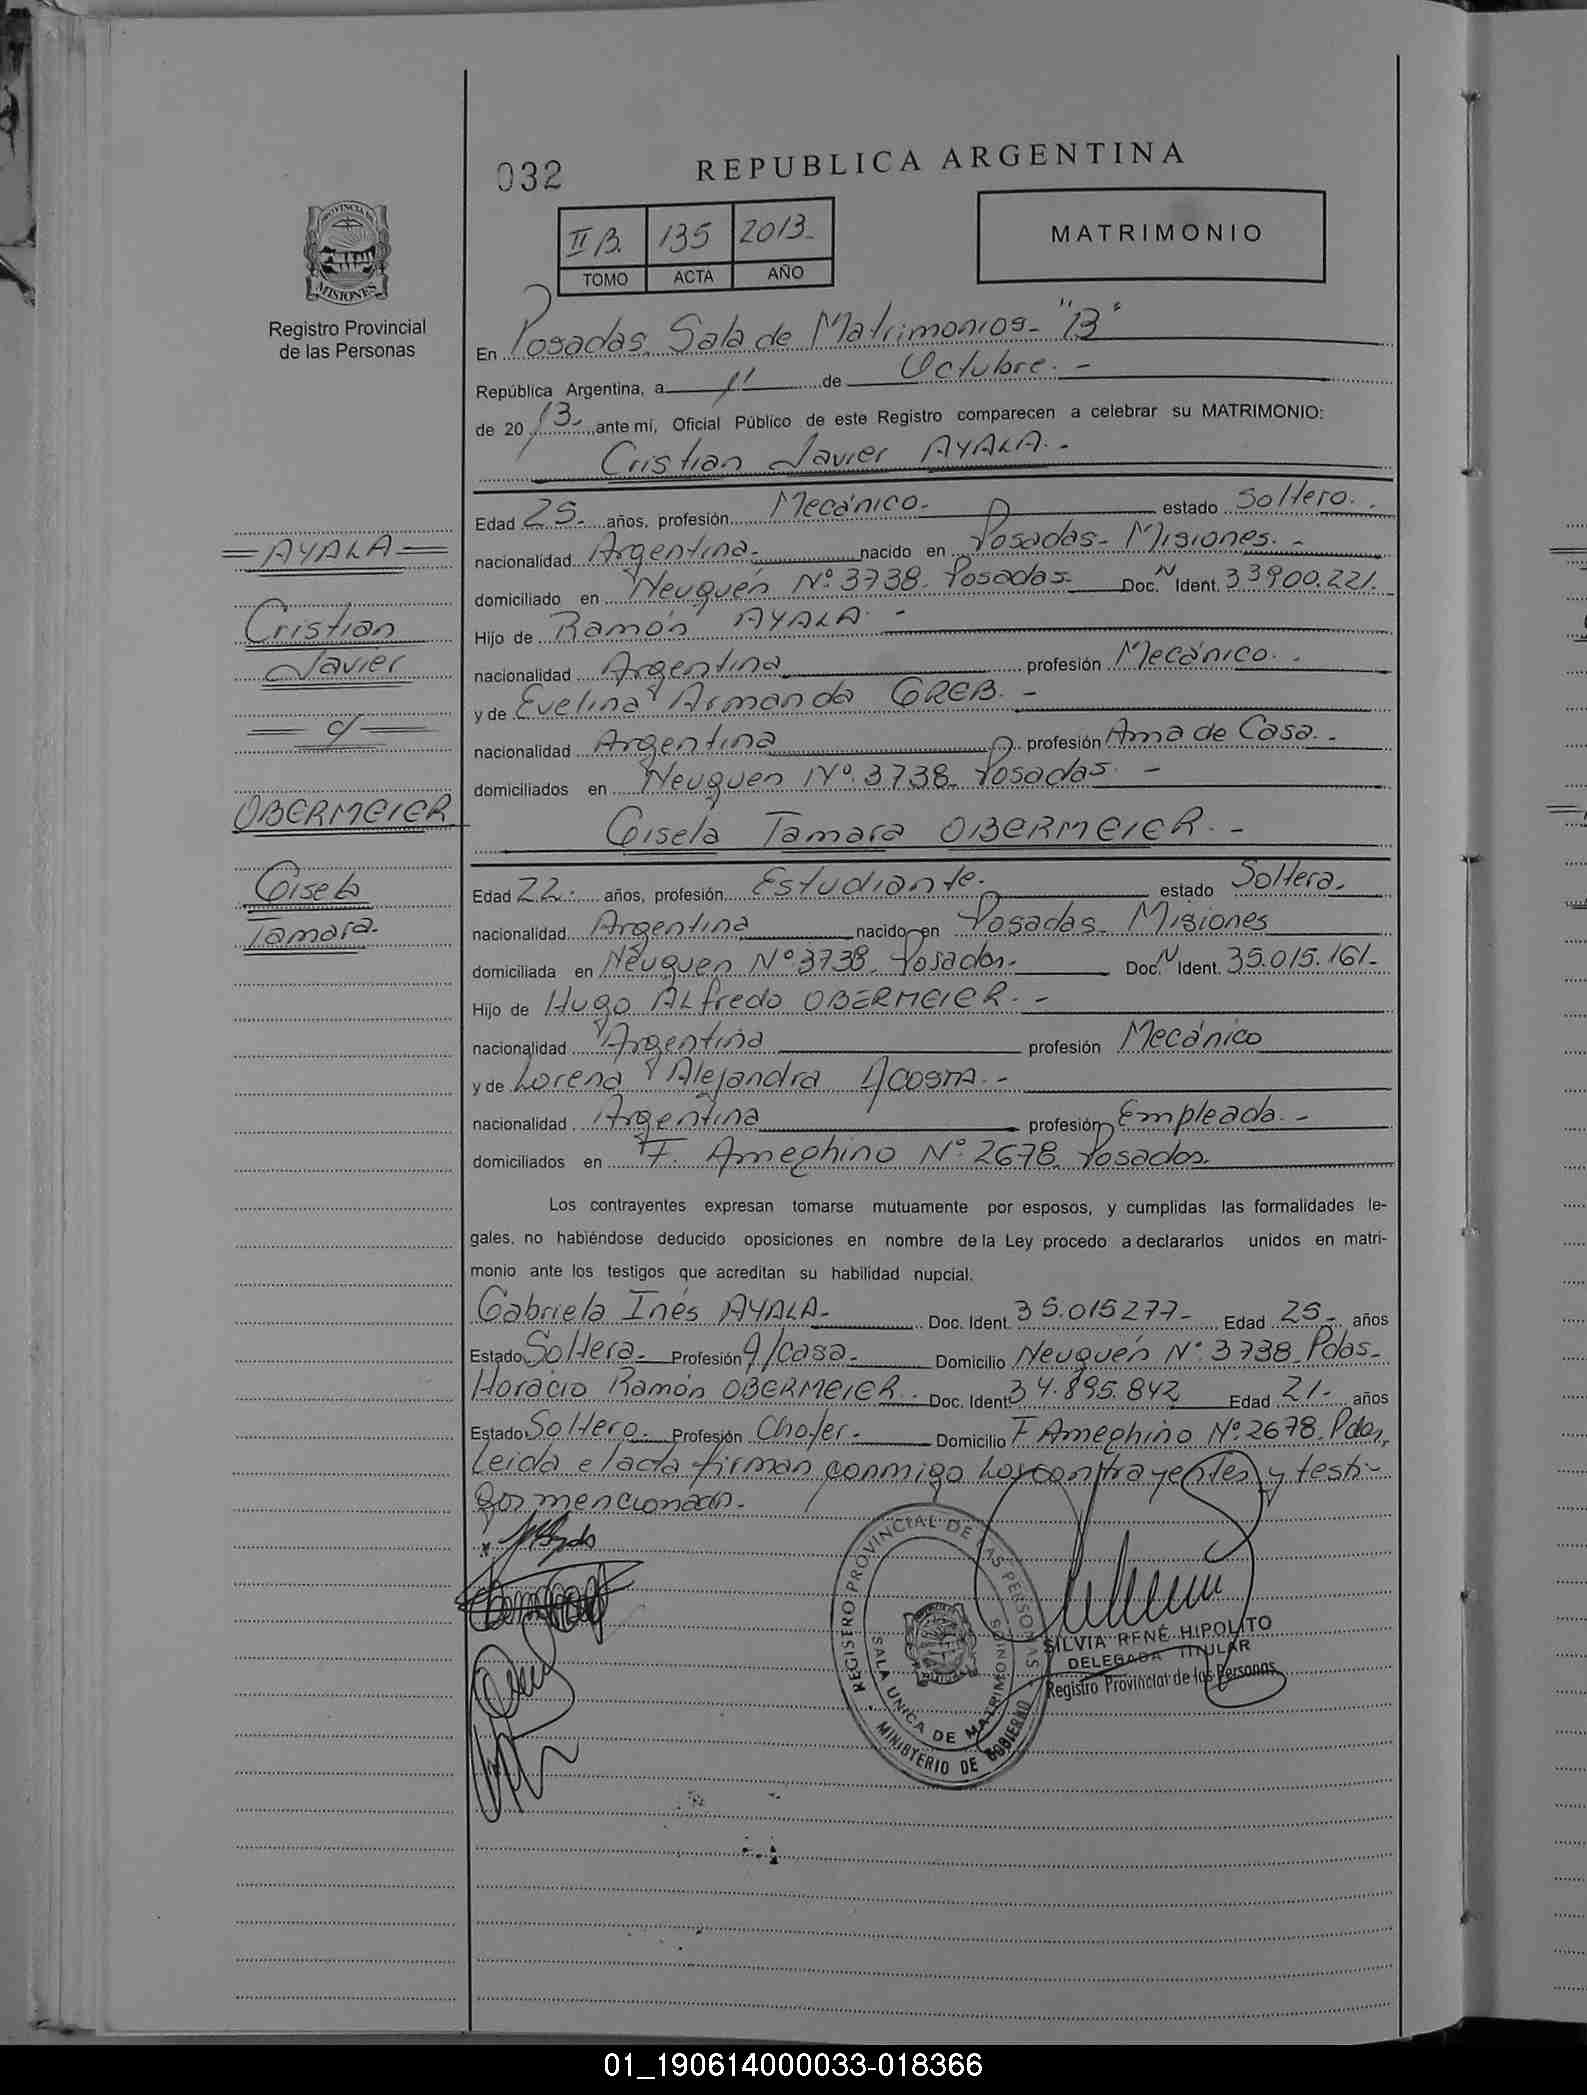 032
REPUBLICA ARGENTINA
II B. 135 2013-
TOMO ACTA AÑO
MATRIMONIO
PROVINCIA DE
MISIONES
Registro Provincial
de las Personas
En Posadas, Sala de Matrimonios- "B"
República Argentina, a 11 de Octubre.-
de 2013- ante mí, Oficial Público de este Registro comparecen a celebrar su MATRIMONIO:
Cristian Javier AYALA.-
Edad 25- años, profesión Mecánico- estado Soltero.-
=AYALA=
nacionalidad Argentina- nacido en Posadas- Misiones.-
domiciliado en Neuquén Nº 3738- Posadas- Doc. N Ident. 33.900.221-
Cristian
Hijo de Ramón AYALA.-
Javier
nacionalidad Argentina profesión Mecánico.-
y de Evelina Armanda GREB.-
= c/ =
nacionalidad Argentina profesión Ama de Casa.-
domiciliados en Neuquen Nº 3738- Posadas.-
OBERMEIER
Gisela Tamara OBERMEIER.-
Gisela
Edad 22.- años, profesión Estudiante. estado Soltera.
Tamara.
nacionalidad Argentina nacido en Posadas- Misiones
domiciliada en Neuquen Nº 3738, Posadas- Doc. N Ident. 35.015.161-
Hijo de Hugo ALfredo OBERMEIER.-
nacionalidad Argentina profesión Mecánico
y de Lorena Alejandra Acosta.-
nacionalidad Argentina profesión Empleada.-
domiciliados en F. Ameghino Nº 2678, Posadas.
Los contrayentes expresan tomarse mutuamente por esposos, y cumplidas las formalidades le-
gales, no habiéndose deducido oposiciones en nombre de la Ley procedo a declararlos unidos en matri-
monio ante los testigos que acreditan su habilidad nupcial.
Gabriela Inés AYALA- Doc. Ident. 35.015277- Edad 25- años
Estado Soltera- Profesión q/casa- Domicilio Neuquén Nº 3738, Pdas-
Horacio Ramón OBERMEIER- Doc. Ident 34.895.842 Edad 21- años
Estado Soltero- Profesión Chofer- Domicilio F Ameghino Nº 2678, Pdas,
Leida el acta firman conmigo los contrayentes y testi-
gos mencionados.
REGISTRO PROVINCIAL DE LAS PERSONAS
SALA UNICA DE MATRIMONIOS
MINISTERIO DE GOBIERNO
SILVIA RENÉ HIPOLITO
DELEGADA TITULAR
Registro Provincial de las Personas
01_190614000033-018366